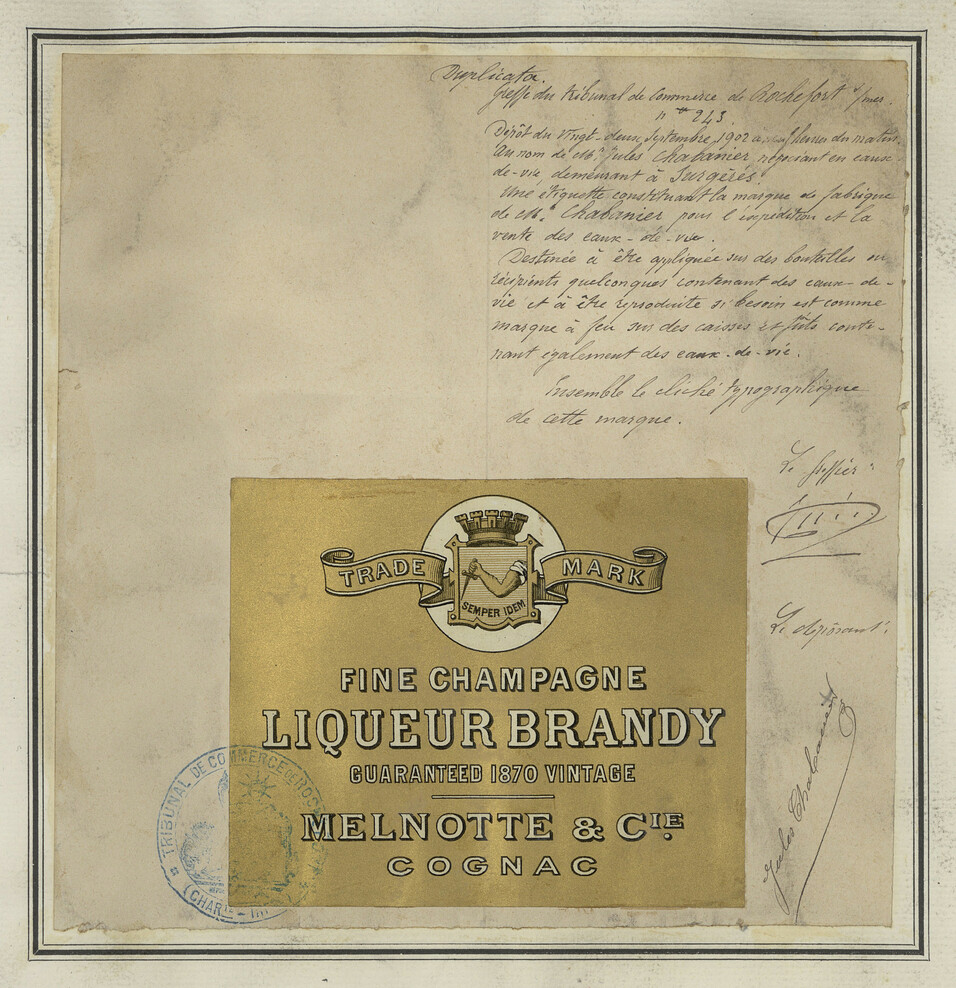 Duplicata.
Greffe du tribunal de Commerce de Rochefort s/mer.
n° 243
Dépôt du vingt-deux Septembre 1902 a neuf heures du matin.
Au nom de Mr. Jules Chabanier négociant en eaux-
de-vie demeurant à Surgères
Une étiquette constituant la marque de fabrique
de Mr. Chabanier pour l'expédition et la
vente des eaux-de-vie.
Destinée à être appliquée sur des bouteilles ou
récipients quelconques contenant des eaux-de-
vie et à être reproduite si besoin est comme
marque à feu sur des caisses et fûts conte-
nant également des eaux-de-vie.
Ensemble le cliché typographique
de cette marque.
Le greffier:
Le déposant:
Jules Chabanier
TRADE MARK
SEMPER IDEM
FINE CHAMPAGNE
LIQUEUR BRANDY
GUARANTEED 1870 VINTAGE
MELNOTTE & CIE.
COGNAC
TRIBUNAL DE COMMERCE DE ROC
(CHARTE - INF